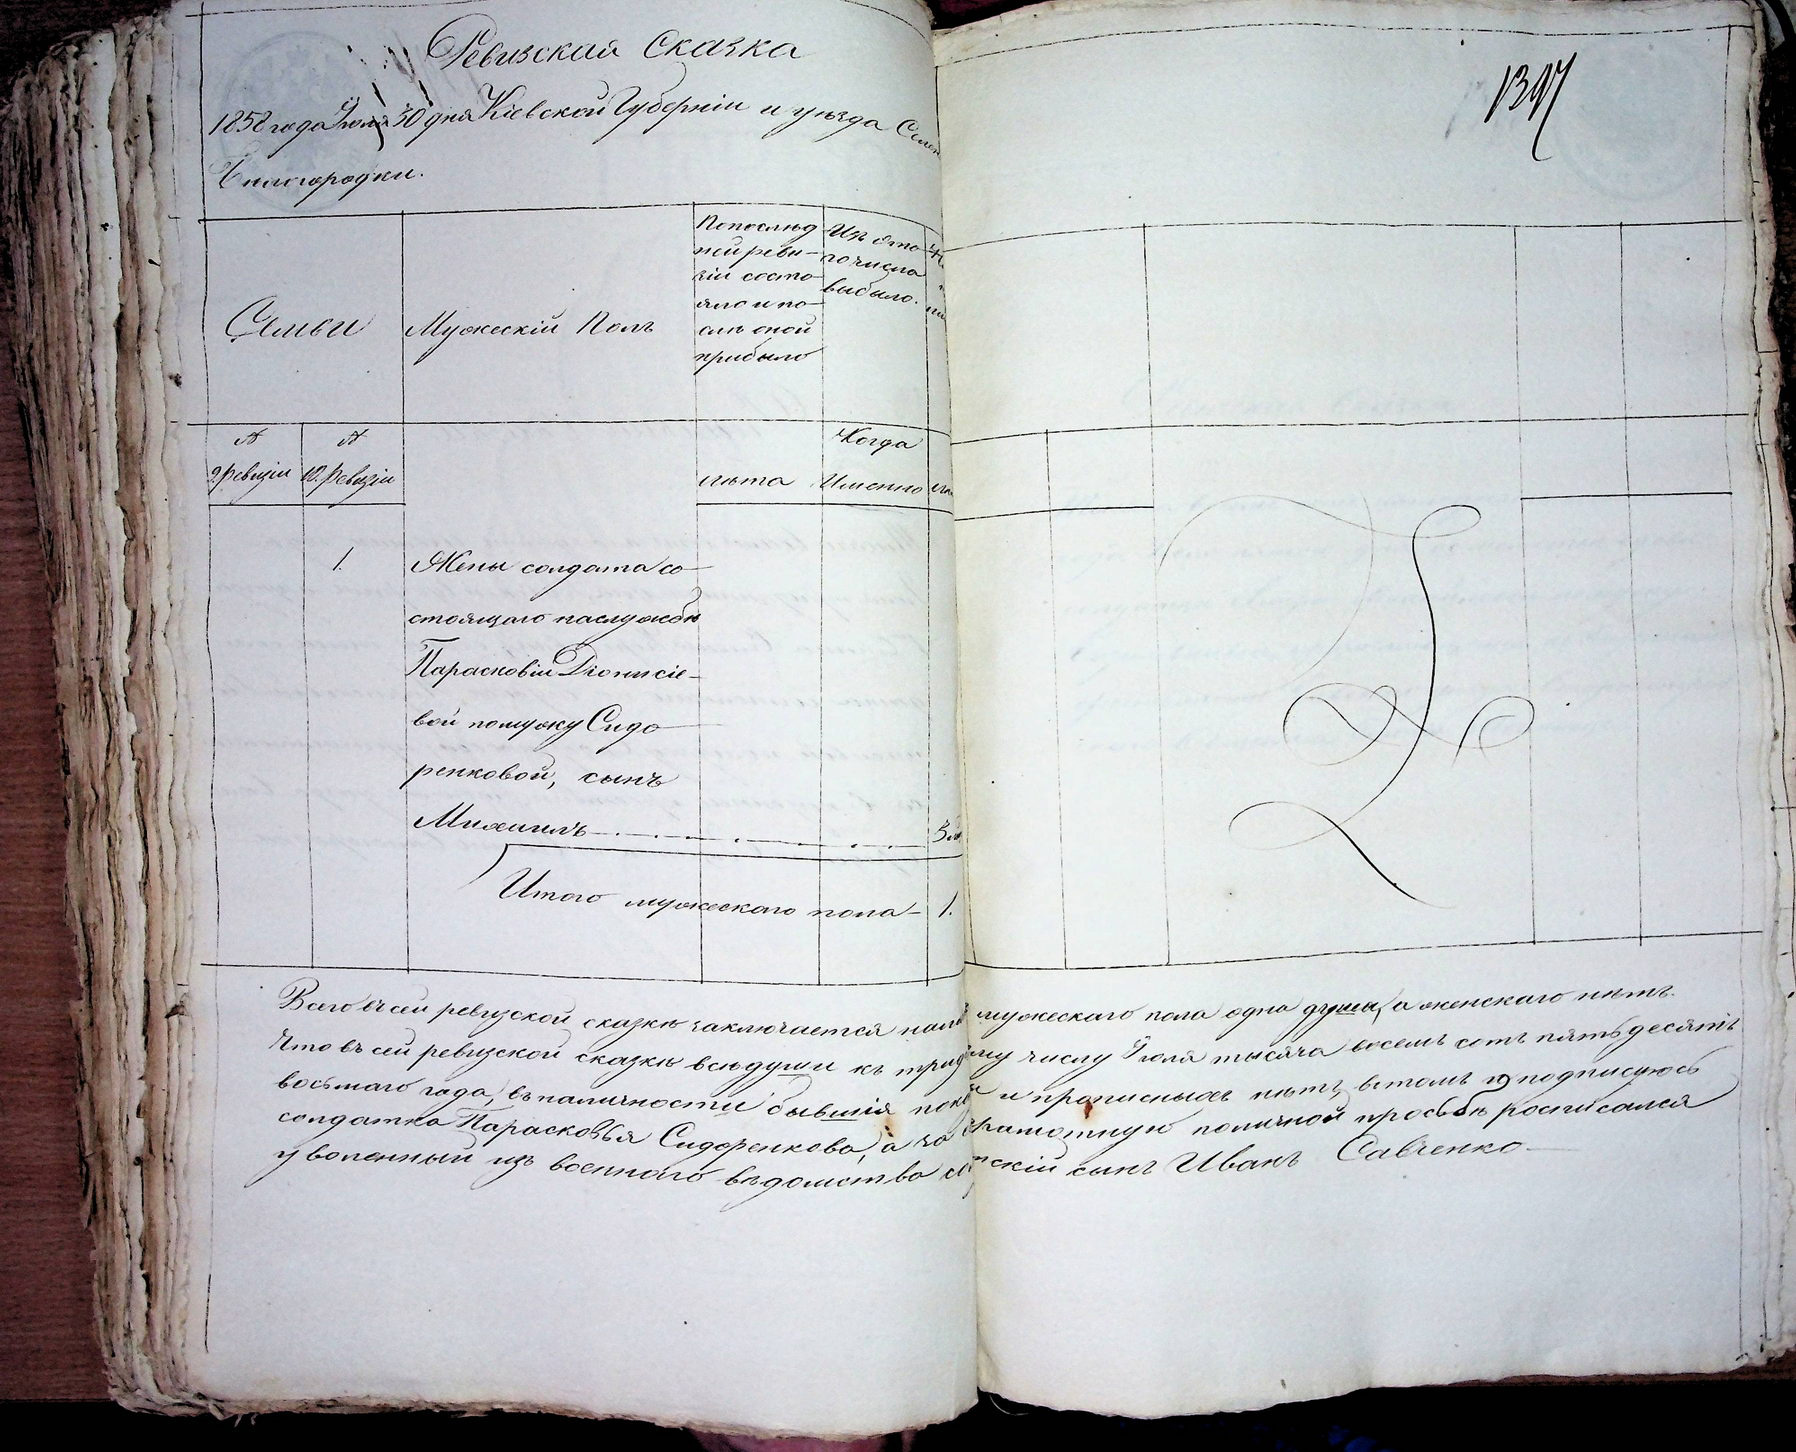 Ревизская Сказка
1347
1858 года Іюля 30 дня Кіевской Губерніи и уѣзда Села
Бѣлогородки.
Семьи
Мужескій Полъ
По послѣд
ней реви-
зіи состо
яло и по-
слѣ оной
прибыло
Изъ это
го числа
выбыло.
№ №
9. Ревизіи 10. Ревизіи
лѣта
Когда
Именно
1. Жены солдата со-
стоящаго на службѣ
Парасковіи Діонисіе-
вой по мужу Сидо-
ренковой, сынъ
Михаилъ 3
Итого мужескаго пола - 1.
Всего въ сей ревизской сказкѣ заключается мужескаго пола одна душа, а женскаго нѣтъ.
Что въ сей ревизской сказкѣ всѣ души къ числу Іюля тысяча восемь сотъ пятьдесятъ
восьмаго года, въ наличности бывшія и прописныхъ нѣтъ, въ томъ и подписуюсь
солдатка Парасковья Сидоренкова, а за личной просьбѣ росписался
уволенный изъ военнаго вѣдомства сынъ Иванъ Савченко